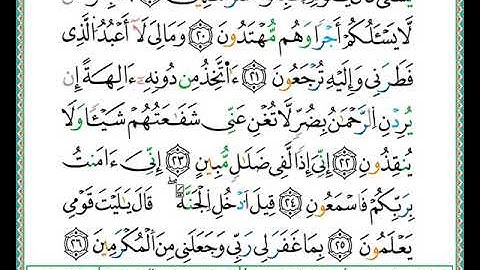 لَّا يَسْـَٔلُكُمْ أَجْرًا وَهُم مُّهْتَدُونَ ٢٠ وَمَالِيَ لَآ أَعْبُدُ الَّذِى
فَطَرَنِى وَإِلَيْهِ تُرْجَعُونَ ٢١ ءَأَتَّخِذُ مِن دُونِهِۦٓ ءَالِهَةً إِن
يُرِدْنِ الرَّحْمَٰنُ بِضُرٍّ لَّا تُغْنِ عَنِّى شَفَٰعَتُهُمْ شَيْـًٔا وَلَا
يُنقِذُونِ ٢٢ إِنِّىٓ إِذًا لَّفِى ضَلَٰلٍ مُّبِينٍ ٢٣ إِنِّىٓ ءَامَنتُ
بِرَبِّكُمْ فَاسْمَعُونِ ٢٤ قِيلَ ادْخُلِ الْجَنَّةَ ۖ قَالَ يَٰلَيْتَ قَوْمِى
يَعْلَمُونَ ٢٥ بِمَا غَفَرَ لِى رَبِّى وَجَعَلَنِى مِنَ الْمُكْرَمِينَ ٢٦